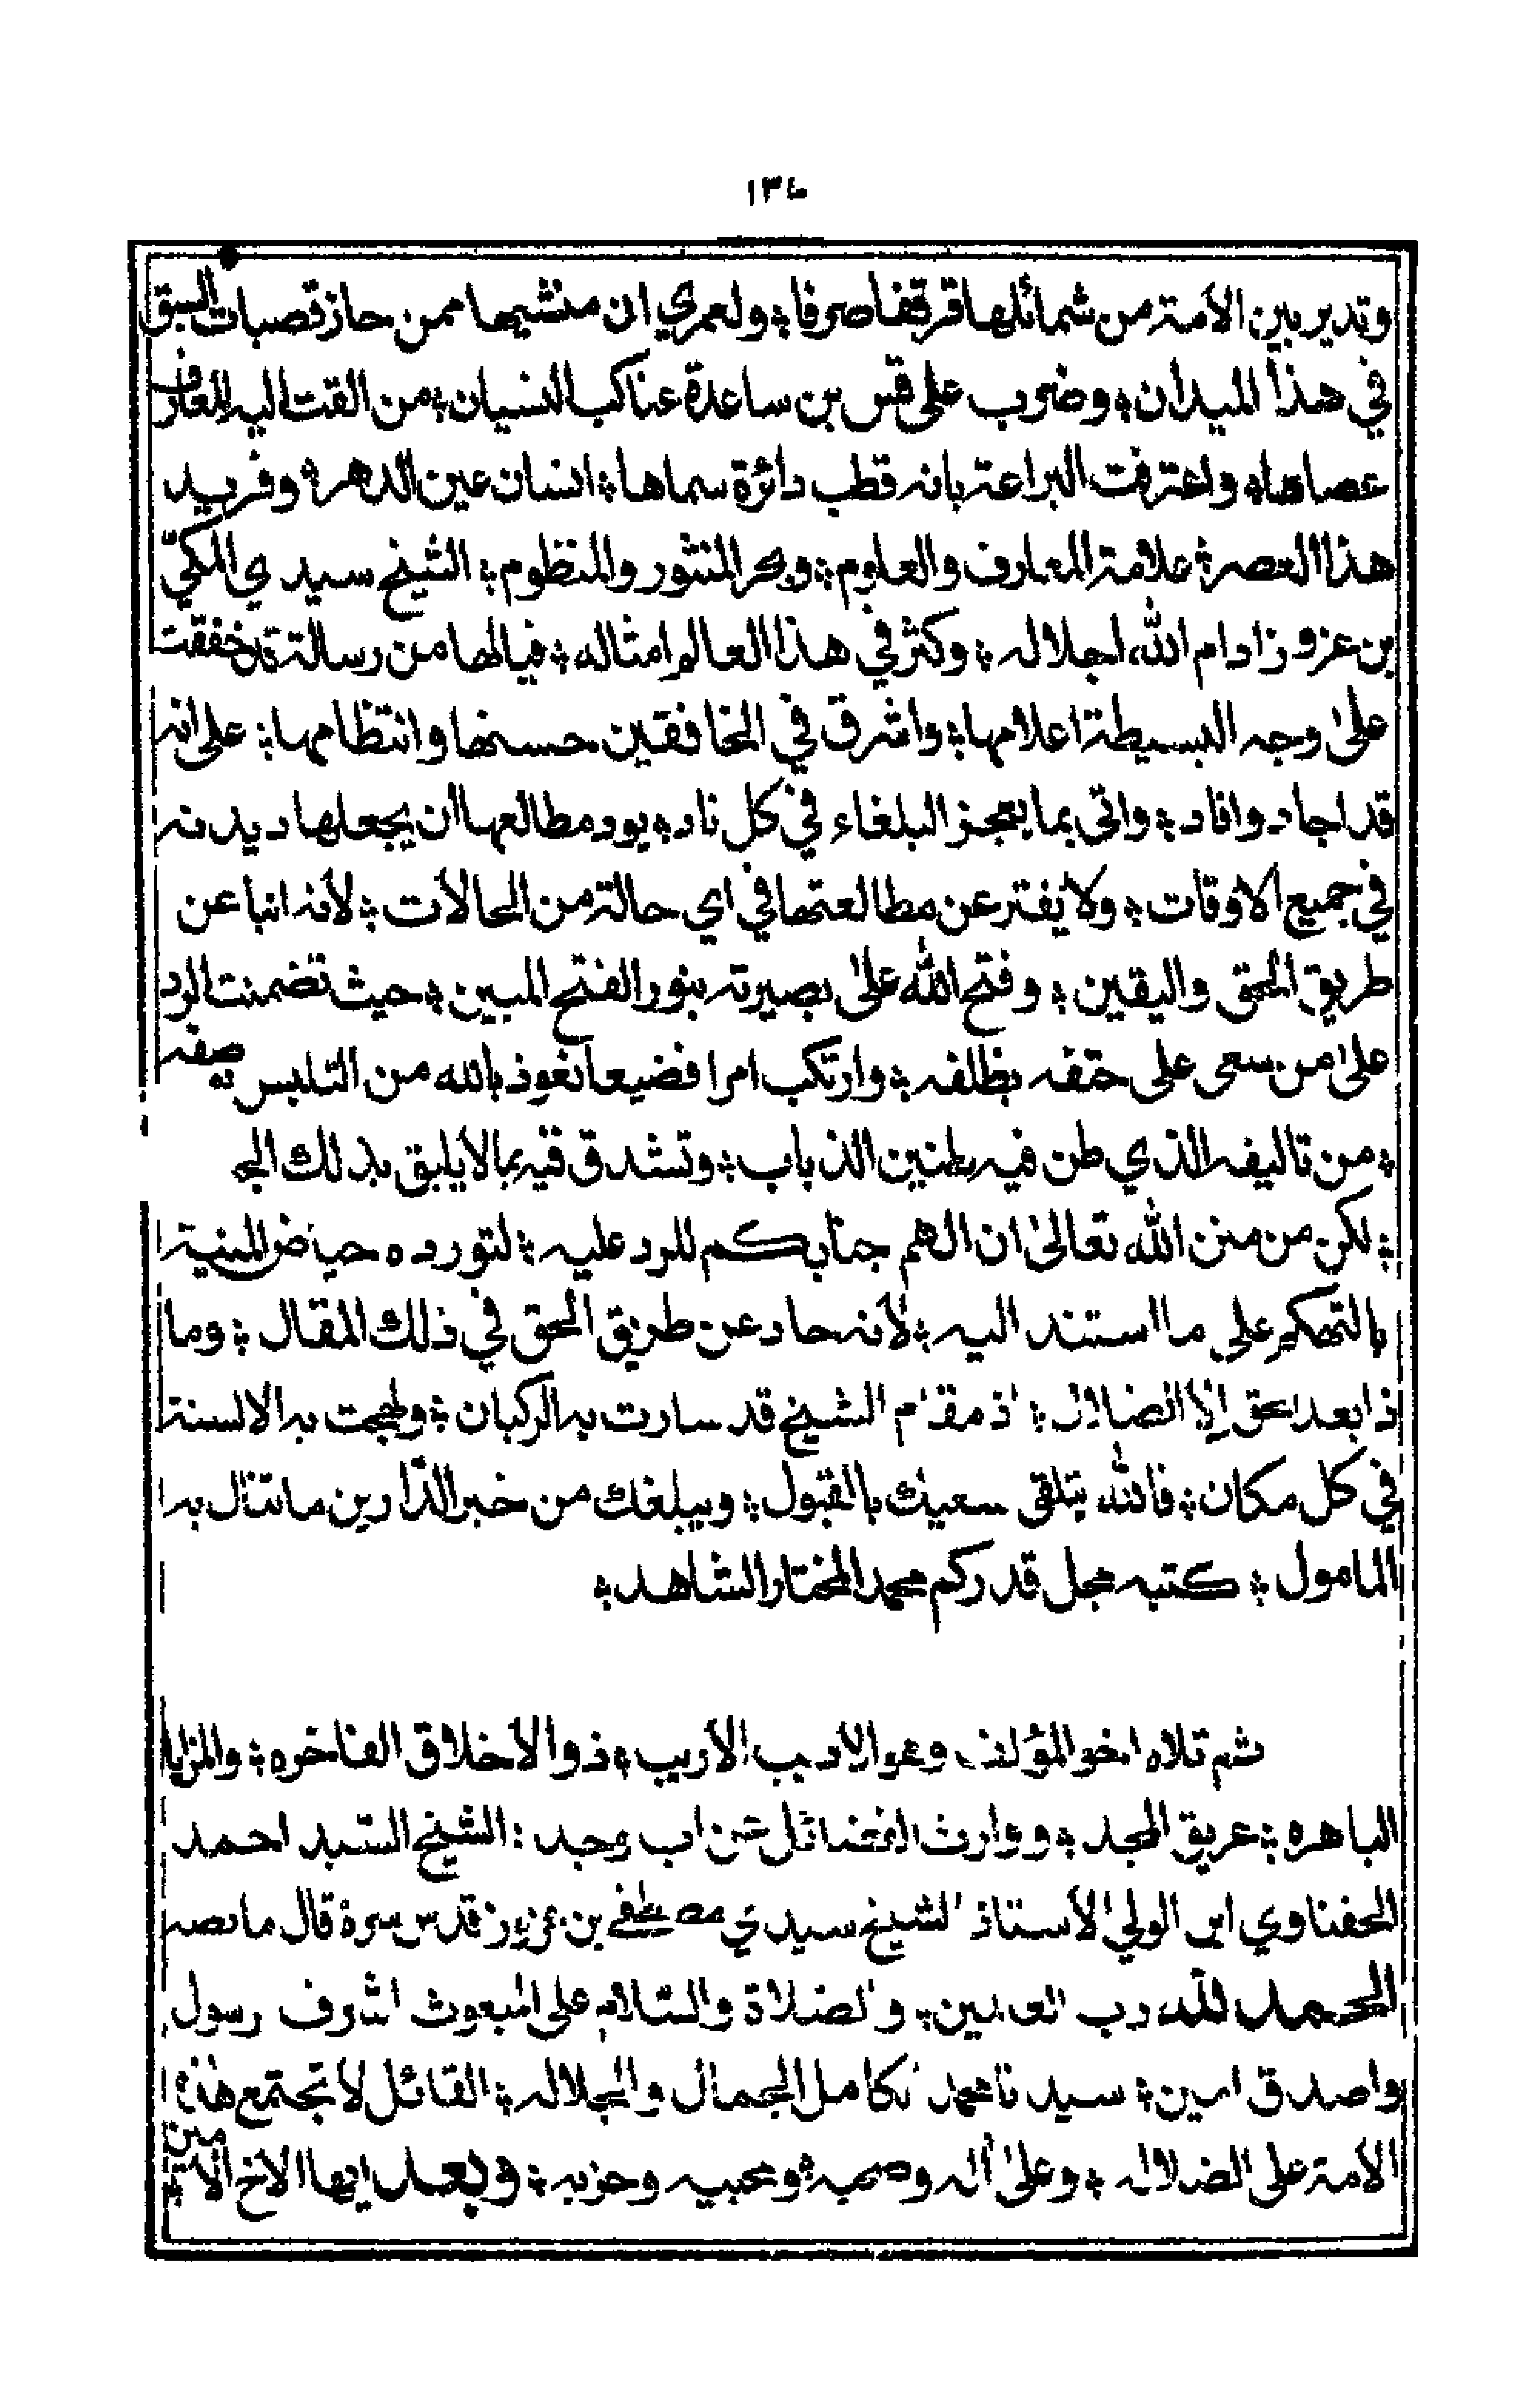 ١٣٤
وتدير بين الأمة من شمائلها قرقفا صرفا ؛ ولعمري ان منشيها ممن حاز قصبات السبق
في هذا الميدان ؛ وضرب على قس بن ساعدة عناكب النسيان ؛ من القت اليه المعارف
عصاها ؛ واعترفت البراعة بانه قطب دائرة سماها ؛ انسان عين الدهر ؛ وفريد
هذا العصر ؛ علامة المعارف والعلوم ؛ وبحر المنثور والمنظوم ؛ الشيخ سيدي المكيّ
بن عزوز ادام الله اجلاله ؛ وكثر في هذا العالم امثاله ؛ فيالها من رسالة قد خفقت
على وجه البسيطة اعلامها ؛ واشرق في الخافقين حسنها وانتظامها ؛ على انه
قد اجاد وافاد ؛ واتى بما يعجز البلغاء في كل ناد ؛ يود مطالعها أن يجعلها ديدنه
في جميع الاوقات ؛ ولا يفتر عن مطالعتها في اي حالة من الحالات ؛ لأنه انبا عن
طريق الحق واليقين ؛ وفتح الله على بصيرته بنور الفتح المبين ؛ حيث تضمنت الرد
على من سعى على حتفه بظلفه ؛ وارتكب امرا فضيعا نعوذ بالله من التلبس بوصفه
؛ من تاليفه الذي طن فيه طنين الذباب ؛ وتشدق فيه بما لا يليق بذلك الجـ
؛ لكن من منن الله تعالى ان الهم جنابكم للرد عليه ؛ لتورده حياض المنية
بالتهكم على ما استند اليه ؛ لأنه حاد عن طريق الحق في ذلك المقال ؛ وما
ذا بعد الحق إلا الضلال ؛ اذ مقام الشيخ قد سارت به الركبان ؛ ولهجت به الالسنة
في كل مكان ؛ فالله يتلقى سعيك بالقبول ؛ ويبلغك من خير الدّارين ما تنال به
المامول ؛ كتبه مجل قدركم محمد المختار الشاهد ؛
ثم تلاه اخو المؤلف وهو الاديب الأريب ؛ ذو الأخلاق الفاخره ؛ والمزايا
الباهره ؛ عريق المجد ؛ ووارث الفضائل عن اب وجد ؛ الشيخ السّيد احمد
الحفناوي ابن الولي الأستاذ الشيخ سيدي مصطفى بن عزوز قدس سره قال ما نصه
الحمد لله رب العالمين ؛ والصلاة والسّلام على المبعوث اشرف رسول
واصدق امين ؛ سيدنا محمد الكامل الجمال والجلاله ؛ القائل لا تجتمع هذه
الأمة على الضلاله ؛ وعلى آله وصحبه ؛ ومحبيه وحزبه ؛ وبعد ايها الاخ الامين ؛